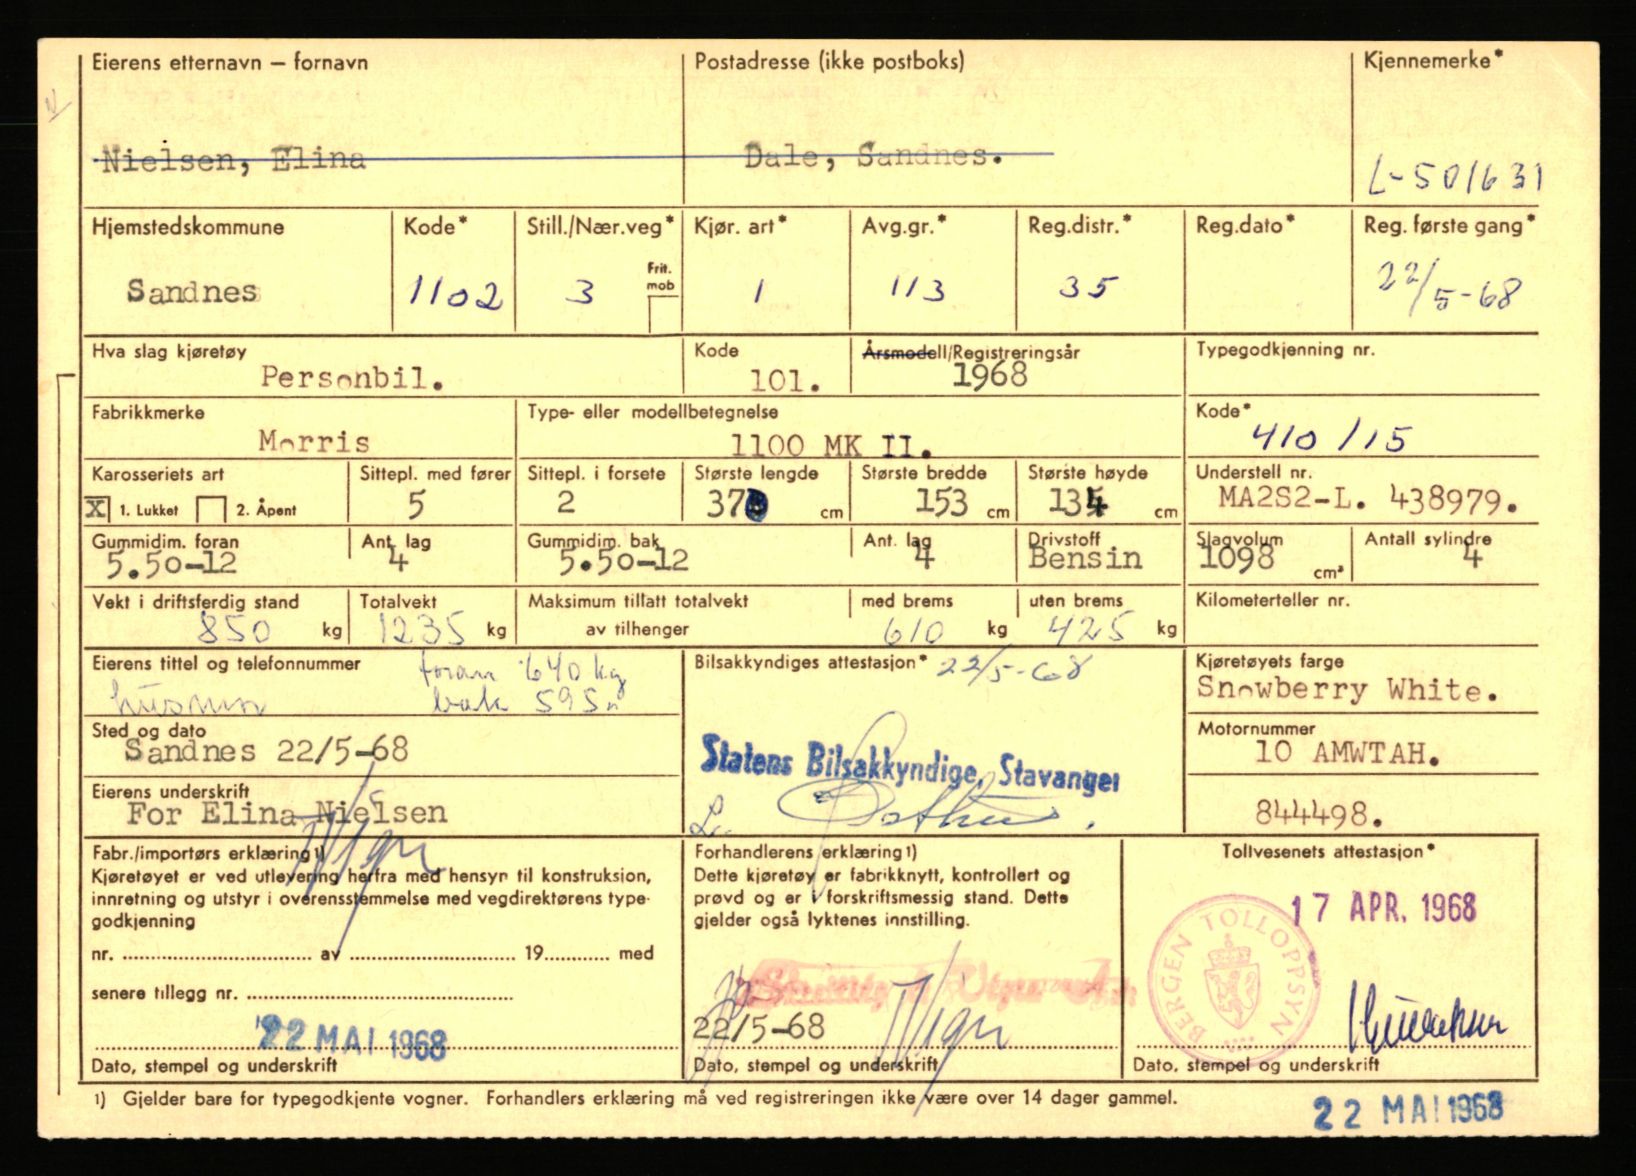 Eierens etternavn – fornavn
Postadresse (ikke postboks)
Kjennemerke*
Nielsen, Elina
Dale, Sandnes.
L-501631
Hjemstedskommune
Kode*
Still./Nær.veg*
Kjør. art*
Avg.gr.*
Reg.distr.*
Reg.dato*
Reg. første gang*
Frit. mob
Sandnes
1102
3
1
113
35
22/5-68
Hva slag kjøretøy
Kode
Årsmodell/Registreringsår
Typegodkjenning nr.
Personbil.
101.
1968
Fabrikkmerke
Type- eller modellbetegnelse
Kode*
Morris
1100 MK II.
410/15
Karosseriets art
Sittepl. med fører
Sittepl. i forsete
Største lengde
Største bredde
Største høyde
Understell nr.
X 1. Lukket
2. Åpent
5
2
370 cm
153 cm
134 cm
MA2S2-L. 438979.
Gummidim. foran
Ant. lag
Gummidim. bak
Ant. lag
Drivstoff
Slagvolum
Antall sylindre
5.50-12
4
5.50-12
4
Bensin
1098 cm³
4
Vekt i driftsferdig stand
Totalvekt
Maksimum tillatt totalvekt
av tilhenger
med brems
uten brems
Kilometerteller nr.
850 kg
1235 kg
610 kg
425 kg
Eierens tittel og telefonnummer
foran 640 kg
bak 595 "
Bilsakkyndiges attestasjon*
22/5-68
Kjøretøyets farge
Snowberry White.
Sted og dato
Sandnes 22/5-68
Statens Bilsakkyndige, Stavanger
Motornummer
10 AMWTAH.
Eierens underskrift
For Elina Nielsen
844498.
Fabr./importørs erklæring 1)
Kjøretøyet er ved utlevering herfra med hensyn til konstruksjon,
innretning og utstyr i overensstemmelse med vegdirektørens type-
godkjenning
nr. av 19 med
senere tillegg nr.
22 MAI 1968
Dato, stempel og underskrift
Forhandlerens erklæring 1)
Dette kjøretøy er fabrikknytt, kontrollert og
prøvd og er i forskriftsmessig stand. Dette
gjelder også lyktenes innstilling.
22/5-68
Dato, stempel og underskrift
Tollvesenets attestasjon*
17 APR. 1968
BERGEN TOLLOPPSYN
Dato, stempel og underskrift
1) Gjelder bare for typegodkjente vogner. Forhandlers erklæring må ved registreringen ikke være over 14 dager gammel.
22 MAI 1968